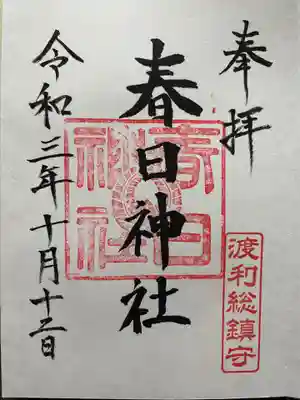 奉拝
渡利総鎮守
春日神社
春日神社
令和三年十月十三日